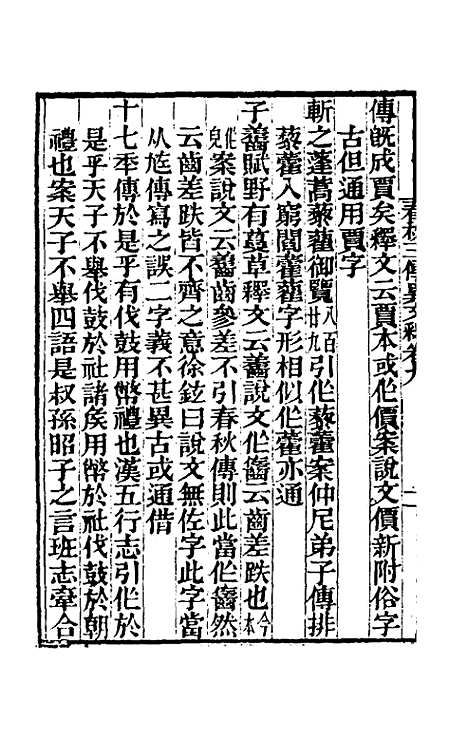 傳既成賈矣釋文云賈本或作價案說文價新附俗字
古但通用賈字
斬之蓬蒿藜藋御覽八百廿九引作藜藿案仲尼弟子傳排
藜藿入窮閻藿藋字形相似作藿亦通
子齹賦野有蔓草釋文云齹說文作𪙉云齒差跌也今本
作𪘓案說文云齹齒參差不引春秋傳則此當作𪙉然
云齒差跌皆不齊之意徐鉉曰說文無佐字此字當
从㝾傳寫之誤二字義不甚異古或通借
十七年傳於是乎有伐鼓用幣禮也漢五行志引作於
是乎天子不舉伐鼓於社諸矦用幣於社伐鼓於朝
禮也案天子不舉四語是叔孫昭子之言班志牽合
春秋三傳異文釋卷八